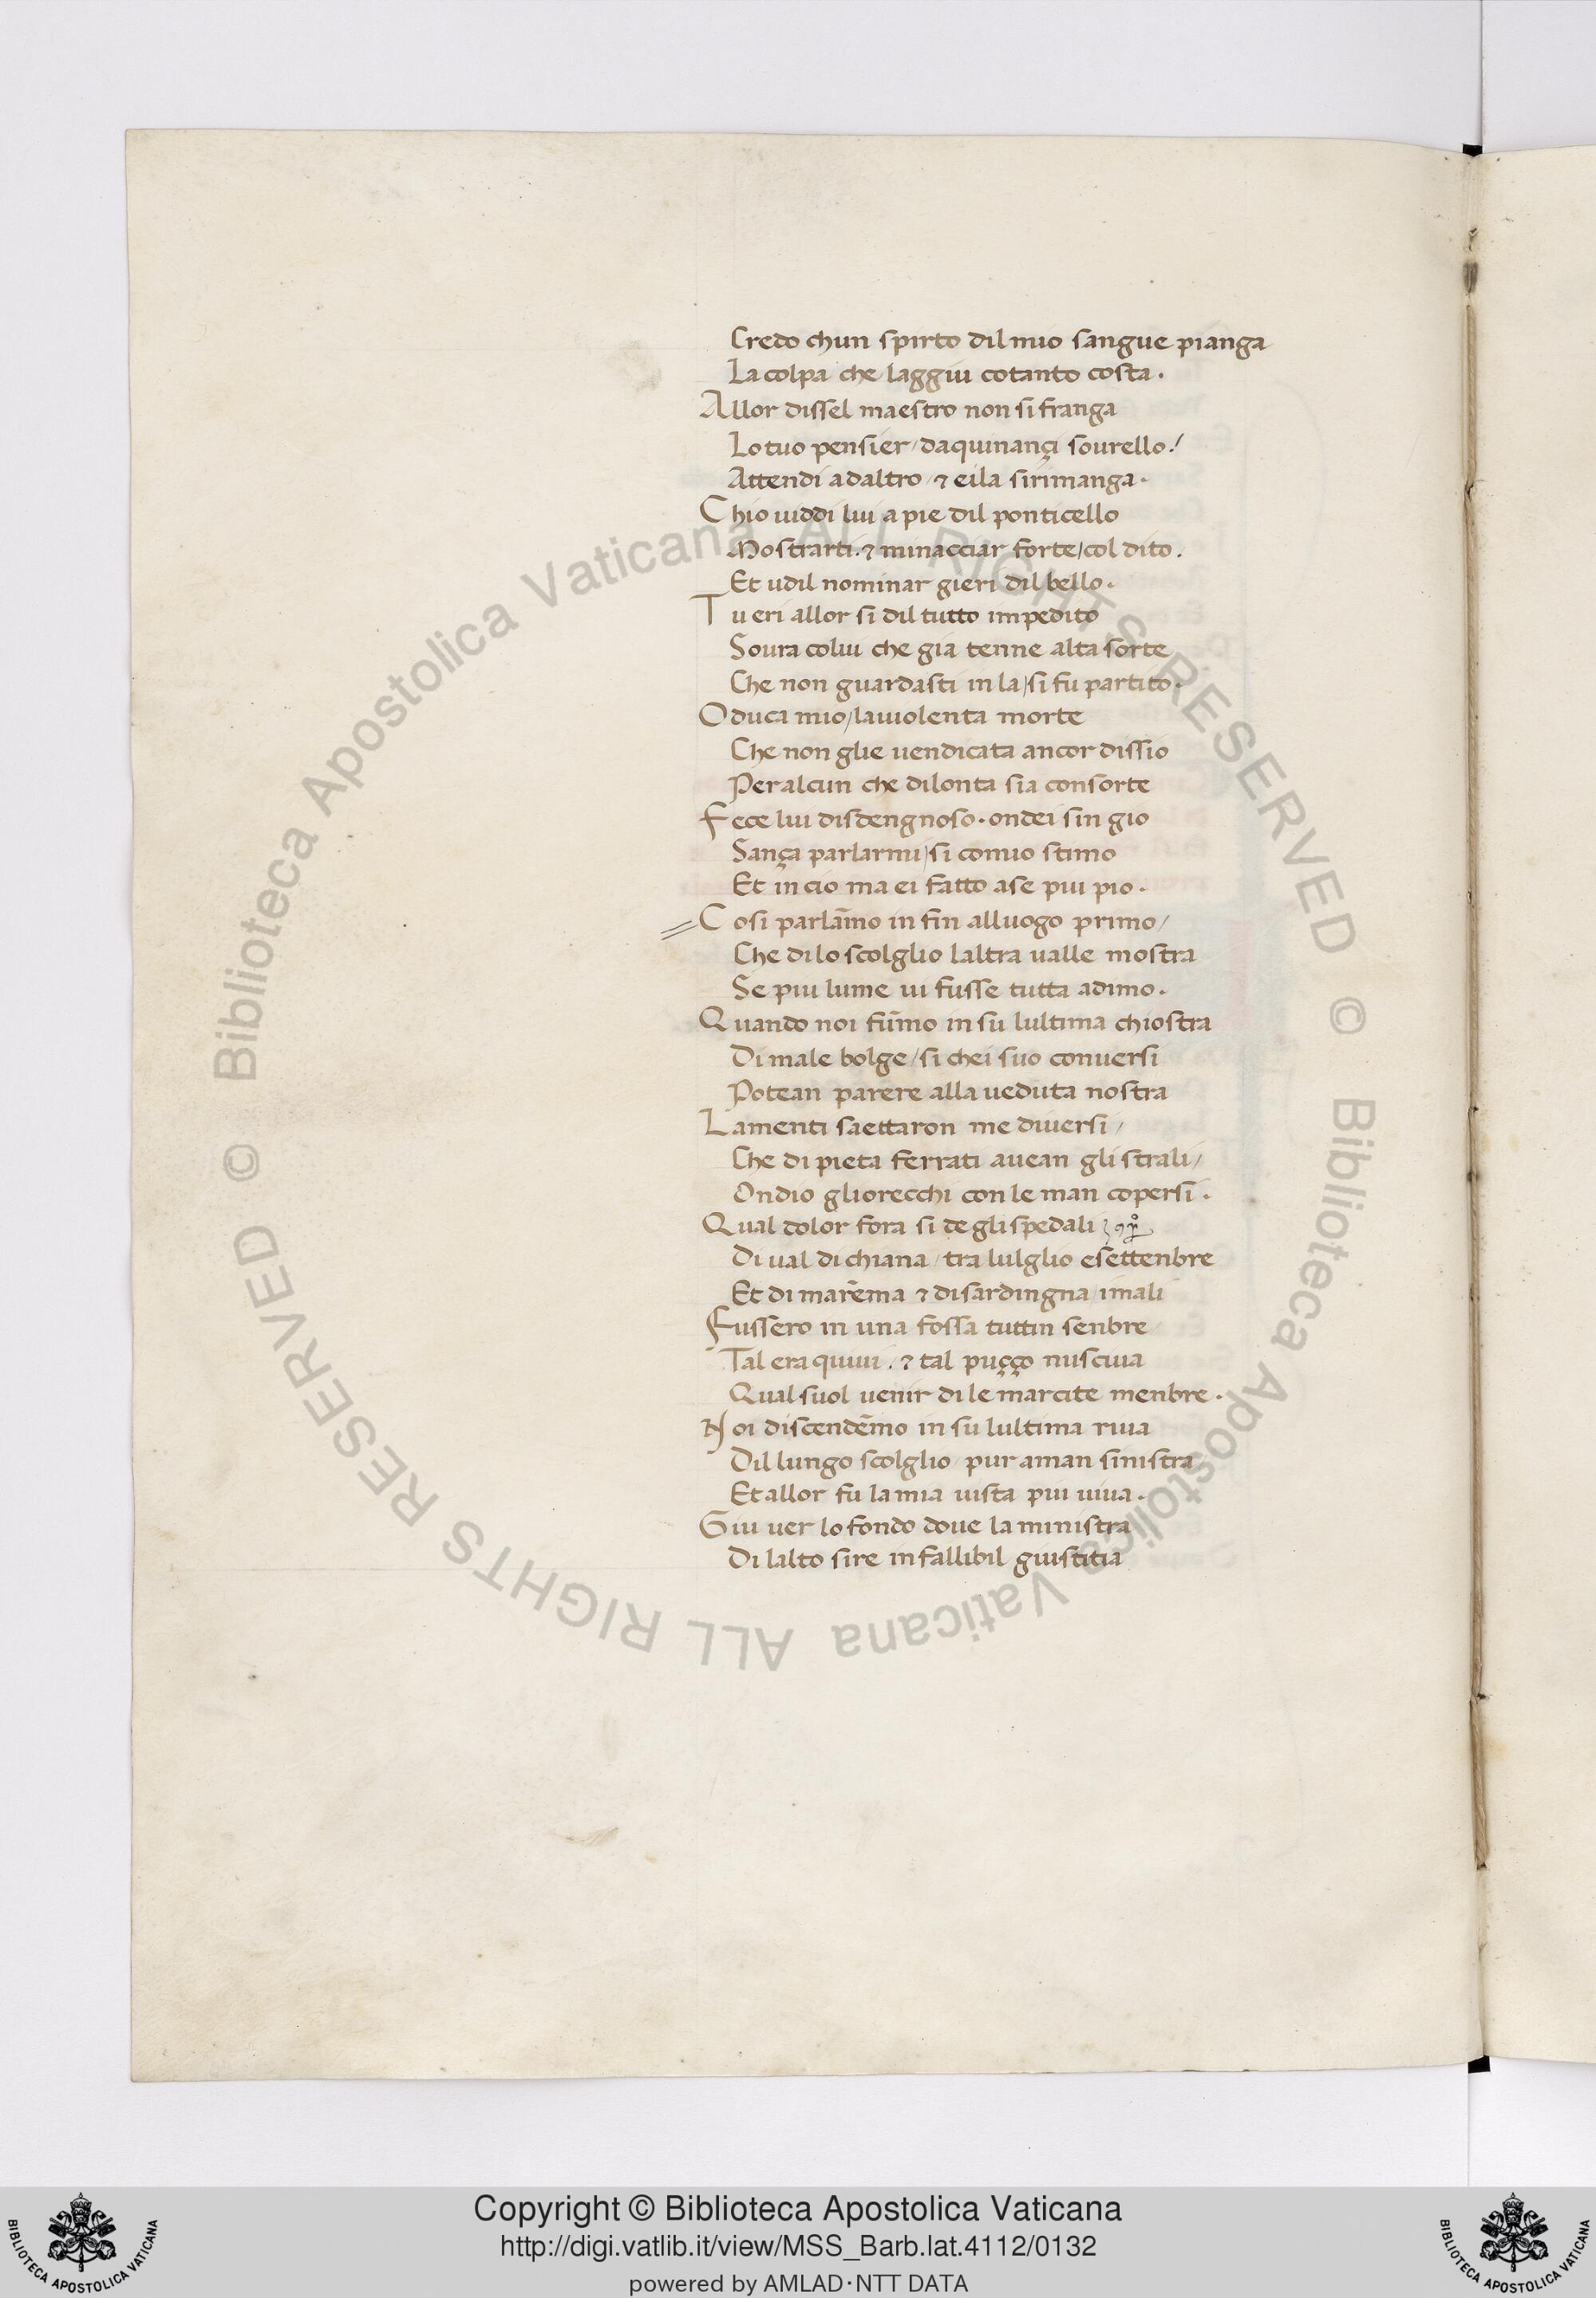 Credo chun spirto dil mio sangue pianga
La colpa che laggiu cotanto costa.
Allor dissel maestro non si franga
Lo tuo pensier / daquinançi sourello!
Attendi adaltro / ⁊ ei la si rimanga.
Chio uiddi lui a pie dil ponticello
Mostrarti. ⁊ minacciar forte / col dito.
Et udil nominar gieri dil bello.
Tu eri allor si dil tutto impedito
Soura colui che gia tenne alta sorte
Che non guardasti in la / si fu partito.
O duca mio / la uiolenta morte
Che non glie uendicata ancor dissio
Per alcun che dilonta sia consorte
Fece lui disdengnoso. ondei sin gio
Sança parlarmi / si comio stimo
Et in cio ma ei fatto a se piu pio.
Cosi parlam̄o in fin alluogo primo /
Che di lo scolglio laltra ualle mostra
Se piu lume ui fusse tutta adimo.
Quando noi fum̄o in su lultima chiostra
Di male bolge / si chei suo conuersi
Potean parere alla ueduta nostra
Lamenti saettaron me diuersi /
Che di pieta ferrati auean gli strali /
Ondio gliorecchi con le man copersi.
Qual dolor fora si de gli spedali
Di ual di chiana / tra lulglio e settenbre
Et di marem̄a ⁊ di sardingna / i mali
Fussero in una fossa tuttin senbre
Tal era quiui. ⁊ tal puçço nusciua
Qual suol uenir di le marcite menbre.
Noi discendem̄o in su lultima riua
Dil lungo scolglio / pur aman sinistra
Et allor fu la mia uista piu uiua.
Giu uer lo fondo doue la ministra
Di lalto sire infallibil giustitia
© Biblioteca Apostolica Vaticana ALL RIGHTS RESERVED
© Biblioteca Apostolica Vaticana ALL RIGHTS RESERVED
Copyright © Biblioteca Apostolica Vaticana
http://digi.vatlib.it/view/MSS_Barb.lat.4112/0132
powered by AMLAD·NTT DATA
BIBLIOTECA APOSTOLICA VATICANA
BIBLIOTECA APOSTOLICA VATICANA